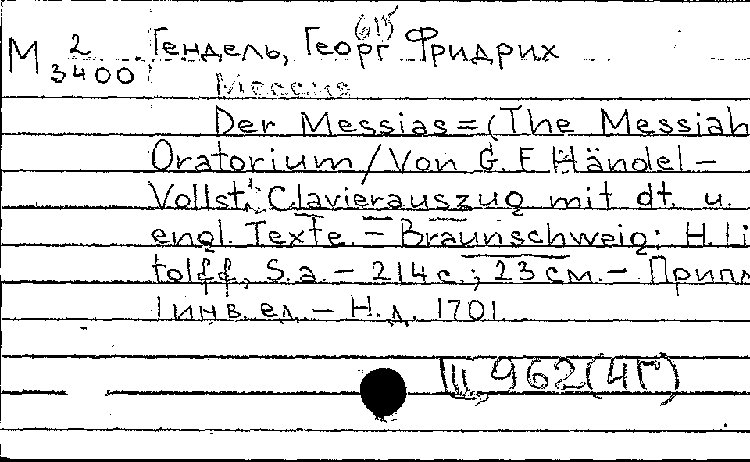 (615
М 2 Гендель, Георг Фридрих
3400
Мессия
Der Messias = (The Messiah
Oratorium / Von G. F. Händel –
Vollst. Clavierauszug mit dt. u.
engl. Texte. – Braunschweig: H. Li
tolff, S. a. – 214 с.; 23 см. – Припл
1 инв. ед. – Н. д. 1701.
III 962(4Г)